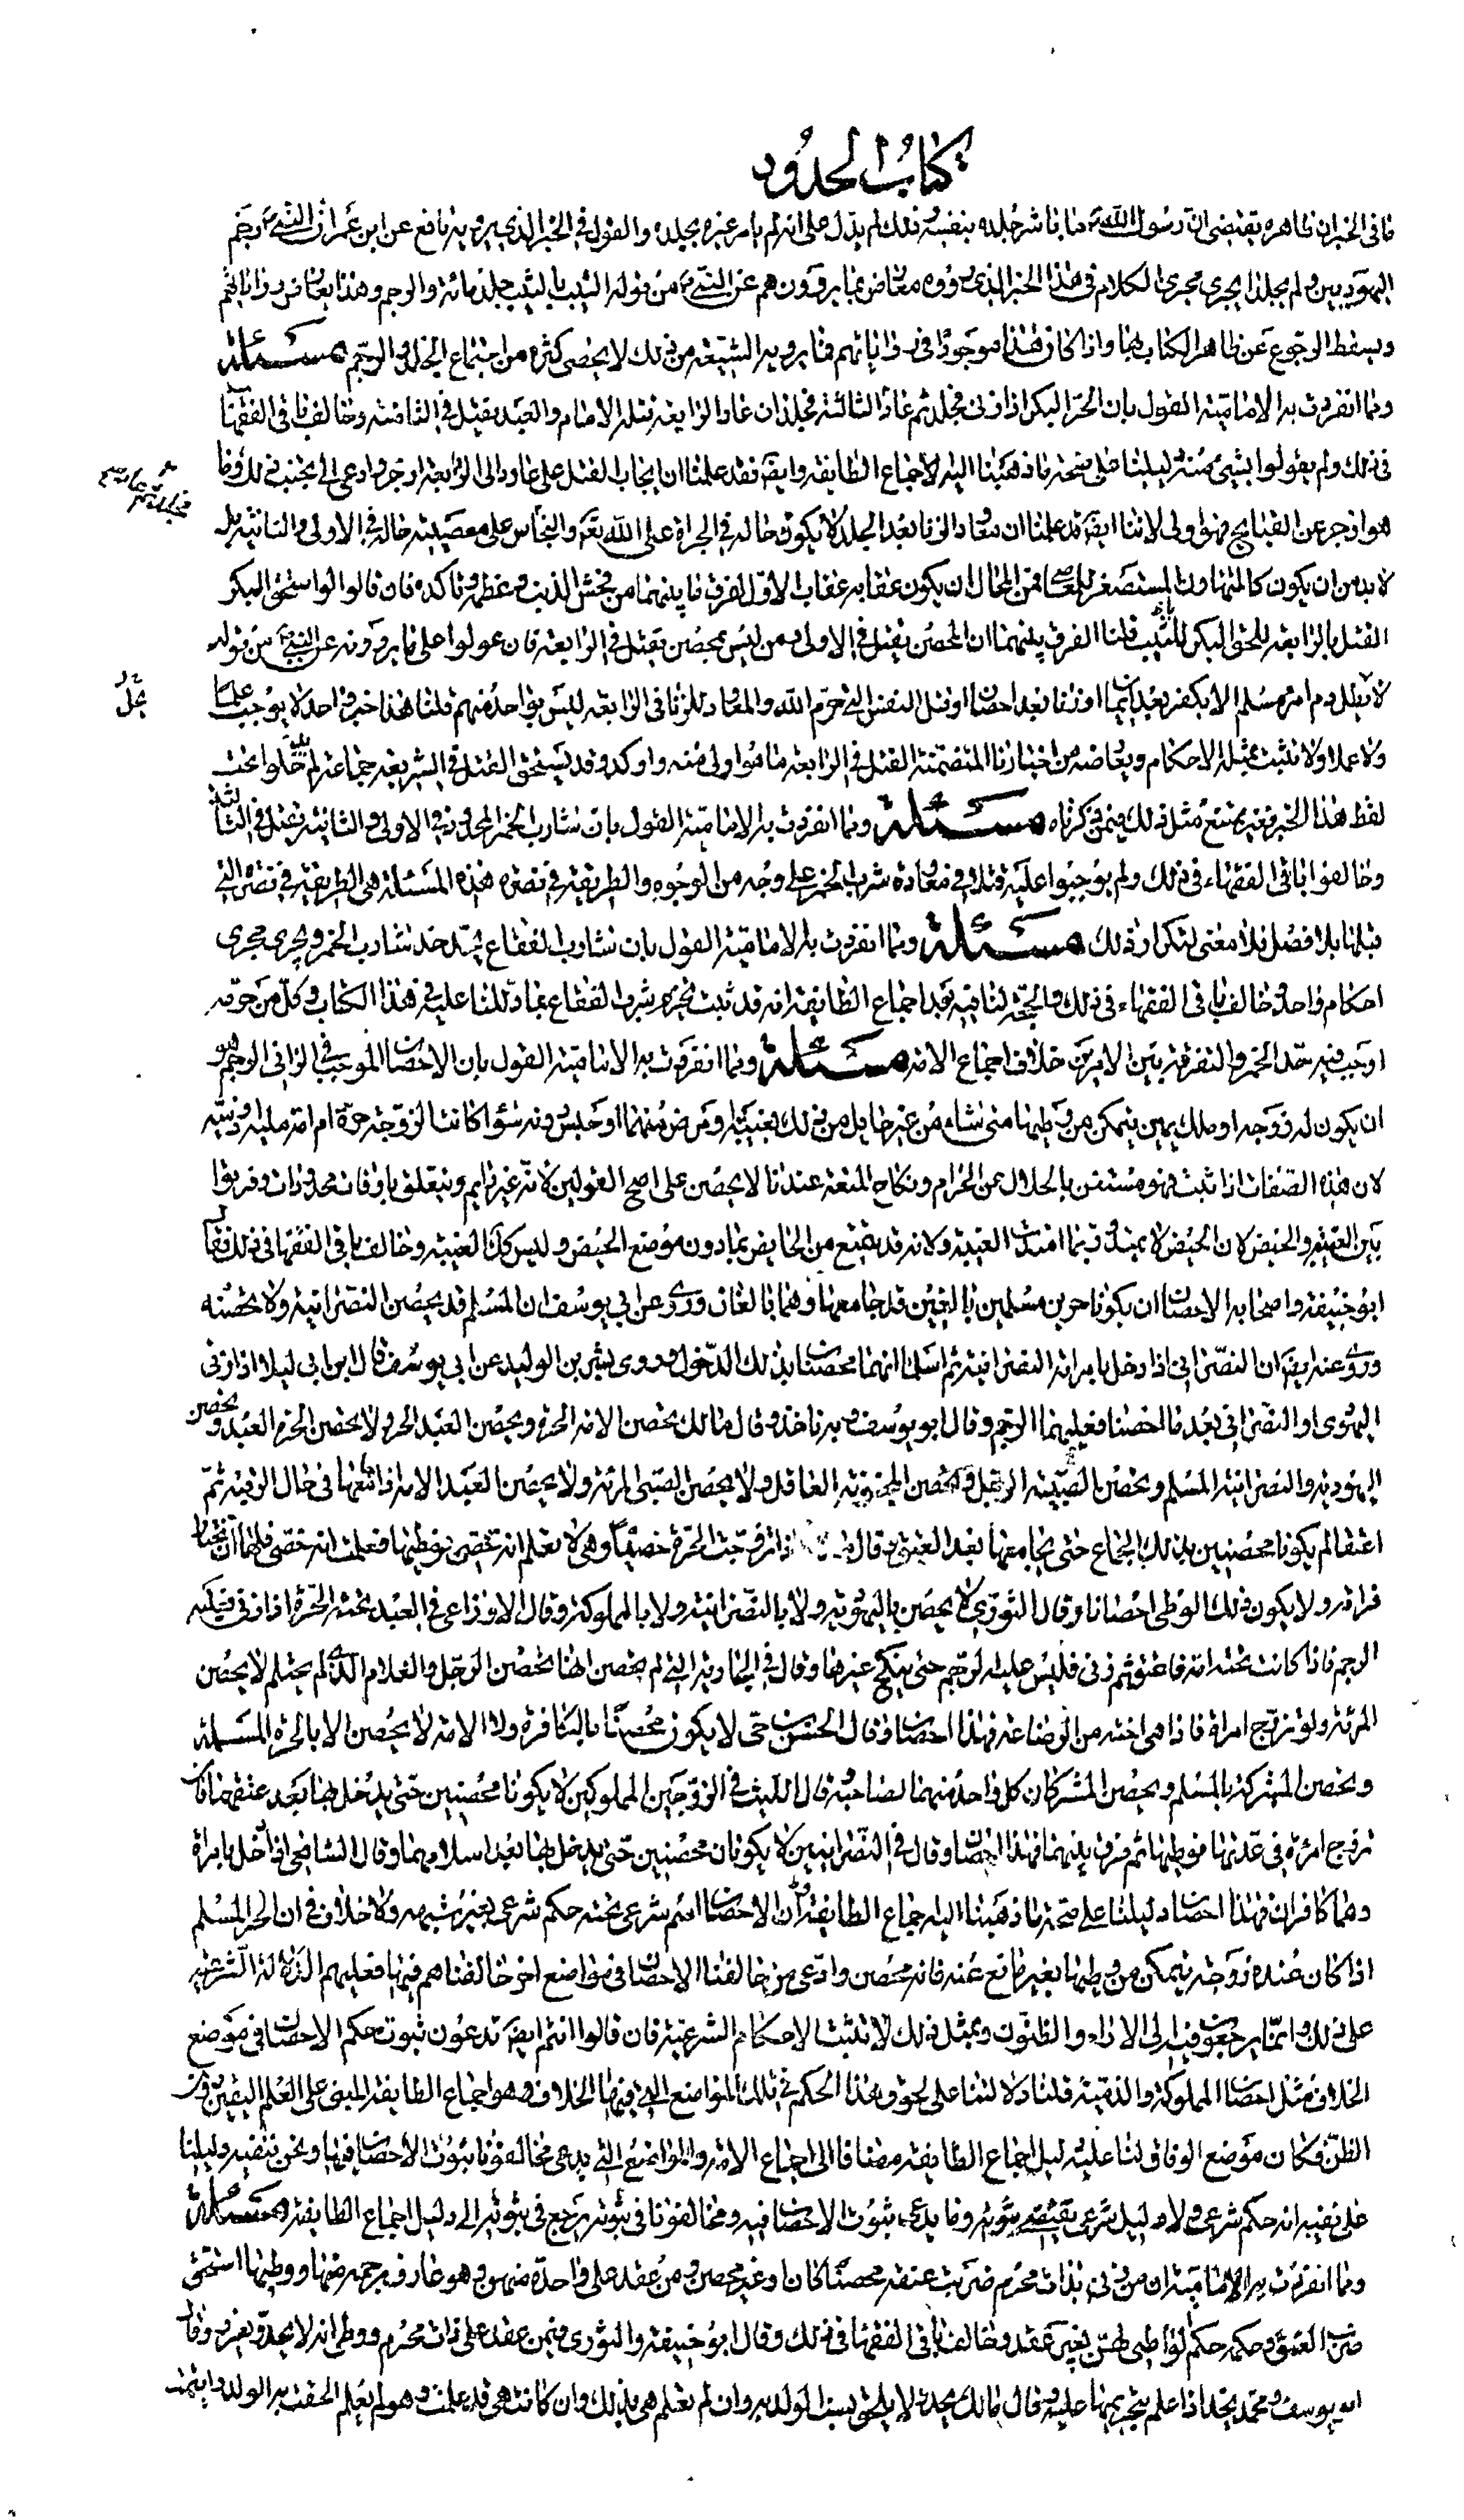 كتاب الحدود
فاني الخبران ظاهره يقتضي ان رسول الله ص ما باشر جلده بنفسه فلك لم يدل على انه لم يامر غيره بجلده والقول في الخبر الذي يرويه نافع عن ابن عمر ان النبي ص رجم
اليهوديين ولم يجلدا يجري مجرى الكلام في هذا الخبر الذي رووه معارض بما يروونه هم عن النبي ص من قوله الثيب بالثيب جلد مائة والرجم وهذا يعارض رواياتهم
ويسقط الرجوع عن ظاهر الكتاب بها واذا كان هذا موجودا في رواياتهم فما يرويه الشيعة من ذلك لا يحصى كثرة من اجتماع الجلد والرجم مسئلة
ومما انفردت به الامامية القول بان الحر البكر اذا زنى فجلد ثم عاد الثالثة فجلد ان عاد الرابعة قتله الامام والعبد يقتل في الثامنة وخالف باقي الفقهاء
في ذلك ولم يقولوا بشئ منه دليلنا على صحة ما ذهبنا اليه لاجماع الطائفة وايضا فقد علمنا ان ايجاب القتل على عاود الى الرابعة ازجر وادعى الى تجنب ذلك وما
هو ازجر عن القبايح فهو اولى لاننا ايضا قد علمنا ان معاود الزنا بعد الجلد لا يكون حاله في الجراة على الله تعالى والتجاسر على معصيته حاله في الاولى والثانية بل
لا بد من ان يكون كالمتهاون المستصغر للمعاصي فمن المحال ان يكون عقابه عقاب الاول لفرق ما بينهما من فحش الذنب وعظمه وتاكده فان قالوا لو استحق البكر
القتل بالرابعة للحق البكر بالثيب قلنا الفرق بينهما ان المحصن يقتل في الاولى ومن ليس بمحصن يقتل في الرابعة فان عولوا على ما يروونه عن النبي ص من قوله
لا يطل دم امرء مسلم الا بكفر بعد ايمان او زنا بعد احصان او قتل النفس التي حرم الله والمعاود للزنا في الرابعة ليس بواحد منهم قلنا هذا خبر واحد لا يوجب علما
ولا عملا ولا تثبت بمثله الاحكام ويعارضه من اخبارنا المتضمنة القتل في الرابعة ما هو اولى منه واوكد وقد يستحق القتل في الشريعة جماعة لم يدخلوا تحت
لفظ هذا الخبر فغير ممتنع مثل ذلك فيمن ذكرناه مسئلة ومما انفردت به الامامية القول بان شارب الخمر المحدود في الاولى والثانية يقتل في الثالثة
وخالفوا باقي الفقهاء في ذلك ولم يوجبوا عليه قتلا في معاودة شرب الخمر على وجه من الوجوه والطريقة في نصرة هذه المسئلة هي الطريقة في نصرة التي
قبلها بلا فصل فلا معنى لتكرار ذلك مسئلة ومما انفردت به الامامية القول بان شارب الفقاع يحد حد شارب الخمر ويجري مجرى
احكام واحد وخالف باقي الفقهاء في ذلك والحجة لنا فيه بعد اجماع الطائفة انه قد ثبت تحريم شرب الفقاع بما دللنا عليه في هذا الكتاب وكل من حرمه
اوجب فيه حد الخمر والتفرقة بين الامرين خلاف اجماع الامة مسئلة ومما انفردت به الامامية القول بان الاحصان الموجب في الزاني الرجم هو
ان يكون له زوجة او ملك يمين يتمكن من وطيها متى شاء من غير حايل من ذلك بغيبة او مرض منهما او حبس دونه سواء كانت الزوجة حرة ام امة ملية او ذمية
لان هذه الصفات اذا ثبتت فهو مستغن بالحلال عن الحرام ونكاح المتعة عندنا لا يحصن على اصح القولين لانه غير دايم ويتعلق باوقات محدودات وفرقوا
بين الغيبة والحيض لان الحيض لا يمتد وربما امتدت الغيبة ولانه قد يتمتع من الحايض بما دون موضع الحيض وليس كذلك الغيبة وخالف باقي الفقهاء في ذلك فقال
ابو حنيفة واصحابه الاحصان ان يكونا حرين مسلمين بالغين قد جامعها وهما بالغان وروى عن ابي يوسف ان المسلم قد يحصن النصرانية ولا تحصنه
وروى عنه ايضا ان النصراني اذا دخل بامراته النصرانية ثم اسلما انهما محصنان بذلك الدخول وروى بشر بن الوليد عن ابي يوسف قال ابن ابي ليلى اذا زنى
اليهودي او النصراني بعد ما احصنا فعليهما الرجم وقال ابو يوسف وبه ناخذ وقال مالك تحصن الامة الحرة ويحصن العبد الحرة ولا تحصن الحرة العبد وتحصن
اليهودية والنصرانية المسلم وتحصن الصبية الرجل وتحصن المجنونة العاقل ولا يحصن الصبي المرئة ولا يحصن العبد الامة اذا جامعها في حال الرقية ثم
اعتقا لم يكونا محصنين بذلك الجماع حتى يجامعها بعد العتق وقال اذا تزوجت الحرة خصيا وهي لا تعلم انه خصي فوطيها فعلمت انه خصي فلها ان تختار
فراقه ولا يكون ذلك الوطي احصانا وقال الثوري لا يحصن باليهودية ولا بالنصرانية ولا بالمملوكة وقال الاوزاعي في العبد تحته الحرة اذا زنى فعليه
الرجم فاذا كانت تحته امة فاعتق ثم زنى فليس عليه الرجم حتى ينكح غيرها وقال في الجارية التي لم تحصن انها تحصن الرجل والغلام الذي لم يحتلم لا يحصن
المرئة ولو تزوج امراة فاذا هي اخته من الرضاعة فهذا احصان وقال الحسن بن حي لا يكون محصنا بالكافرة ولا الامة لا يحصن الا بالحرة المسلمة
وتحصن المشركة بالمسلم ويحصن المشركان كل واحد منهما لصاحبه وقال الليث في الزوجين المملوكين لا يكونا محصنين حتى يدخل بها بعد عتقهما فان
تزوج امرئة في عدتها فوطيها ثم فرق بينهما فهذا احصان وقال في النصرانيين لا يكونان محصنين حتى يدخل بها بعد اسلامهما وقال الشافعي اذا دخل بامراة
وهما كافران فهذا احصان دليلنا على صحة ما ذهبنا اليه اجماع الطائفة وان الاحصان اسم شرعي تحته حكم شرعي بغير شبهة ولا خلاف في ان الحر المسلم
اذا كان عنده زوجة يتمكن من وطيها بغير مانع عنه فانه محصن وادعى من خالفنا الاحصان في مواضع اخر خالفناهم فيها فعليهم الدلالة الشرعية
على ذلك وانما يرجعون فيه الى الآراء والظنون وبمثل ذلك لا تثبت الاحكام الشرعية فان قالوا انتم ايضا تدعون ثبوت حكم الاحصان في موضع
الخلاف مثل احصان المملوكة والذمية قلنا دلالتنا على لحوق هذا الحكم في تلك المواضع التي فيها الخلاف وهو اجماع الطائفة المبني على العلم اليقين دون
الظن فكان موضع الوفاق لنا عليه دليل اجماع الطائفة مضافا الى اجماع الامة والمواضع التي يدعي مخالفونا ثبوت الاحصان فيها ونحن ننفيه دليلنا
على نفيه انه حكم شرعي ولا دليل شرعي يقتضي ثبوته وما يدعى ثبوت الاحصان فيه ومخالفونا في ثبوته نرجع في ثبوته الى دليل اجماع الطائفة مسئلة
ومما انفردت به الامامية ان من زنى بذات محرم ضربت عنقه محصنا كان او غير محصن ومن عقد على واحدة منهن وهو عارف برحمه منها ووطيها استحق
ضرب العنق وحكمه حكم الواطي لهن بغير عقد وخالف باقي الفقهاء في ذلك وقال ابو حنيفة والثوري فيمن عقد على ذات محرم ووطي انه لا يحد ويعزر وقال
ابو يوسف ومحمد يحد اذا علم بتحريمها عليه وقال مالك يحد ولا يلحق نسب الولد به وان لم تعلم هي بذلك وان كانت هي قد علمت وهو لم يعلم الحقت به الولد